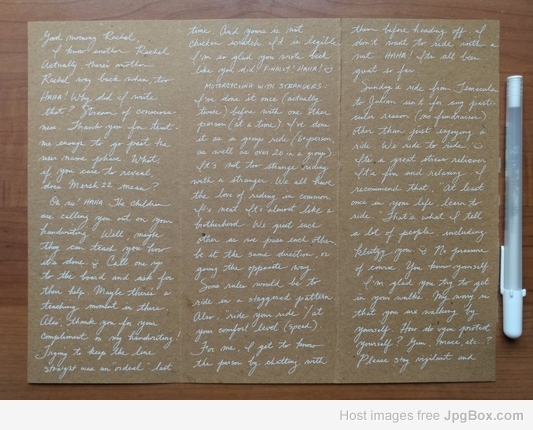 Good morning Rachel,
I know another Rachel
Actually there's another
Rachel way back when, too
HAHA! Why did I write
that? Stream of conscious-
ness. Thank you for trust-
me enough to go past the
new name phase. What,
if you care to reveal,
does March 22 mean?
Oh no! HAHA The children
are calling you out on your
handwriting. Well maybe
they can teach you how
it's done. Call one up
to the board and ask for
their help. Maybe there's a
teaching moment in there.
Also, thank you for your
compliment on my handwriting!
Trying to keep the line
straight was an ordeal last
time. And yours is not
chicken scratch. I'd in legible
I'm so glad you wrote back
like you did. FINALLY! HAHA!
MOTORCYCLING WITH STRANGERS:
I've done it once (actually
twice) before with one other
person (at a time). I've done
it in a group ride (6 person,
as well as over 20 in a group).
It's not too strange riding
with a stranger. We all have
the love of riding in common.
It's neat. It's almost like a
brotherhood. We greet each
other as we pass each other
be it the same direction, or
going the opposite way.
Some rules would be to
ride in a staggered pattern.
Also, "ride your ride" / at
your comfort level (speed).
For me, I get to know
the person by chatting with
them before heading off. I
don't want to ride with a
nut HAHA! It's all been
great so far.
Sunday's ride from Temecula
to Julian isn't for any partic-
ular reason (no fundraiser)
other than just enjoying a
ride. We ride to ride.
It's a great stress reliever.
It's fun and relaxing. I
recommend that, "At least
once in your life, learn to
ride." That's what I tell
a lot of people including
you. No pressure
of course. You know yourself
I'm glad you try to get
in your walks. My worry is
that you are walking by
yourself. How do you protect
yourself? Gun, mace, etc..?
Please stay vigilant and
Host images free JpgBox.com